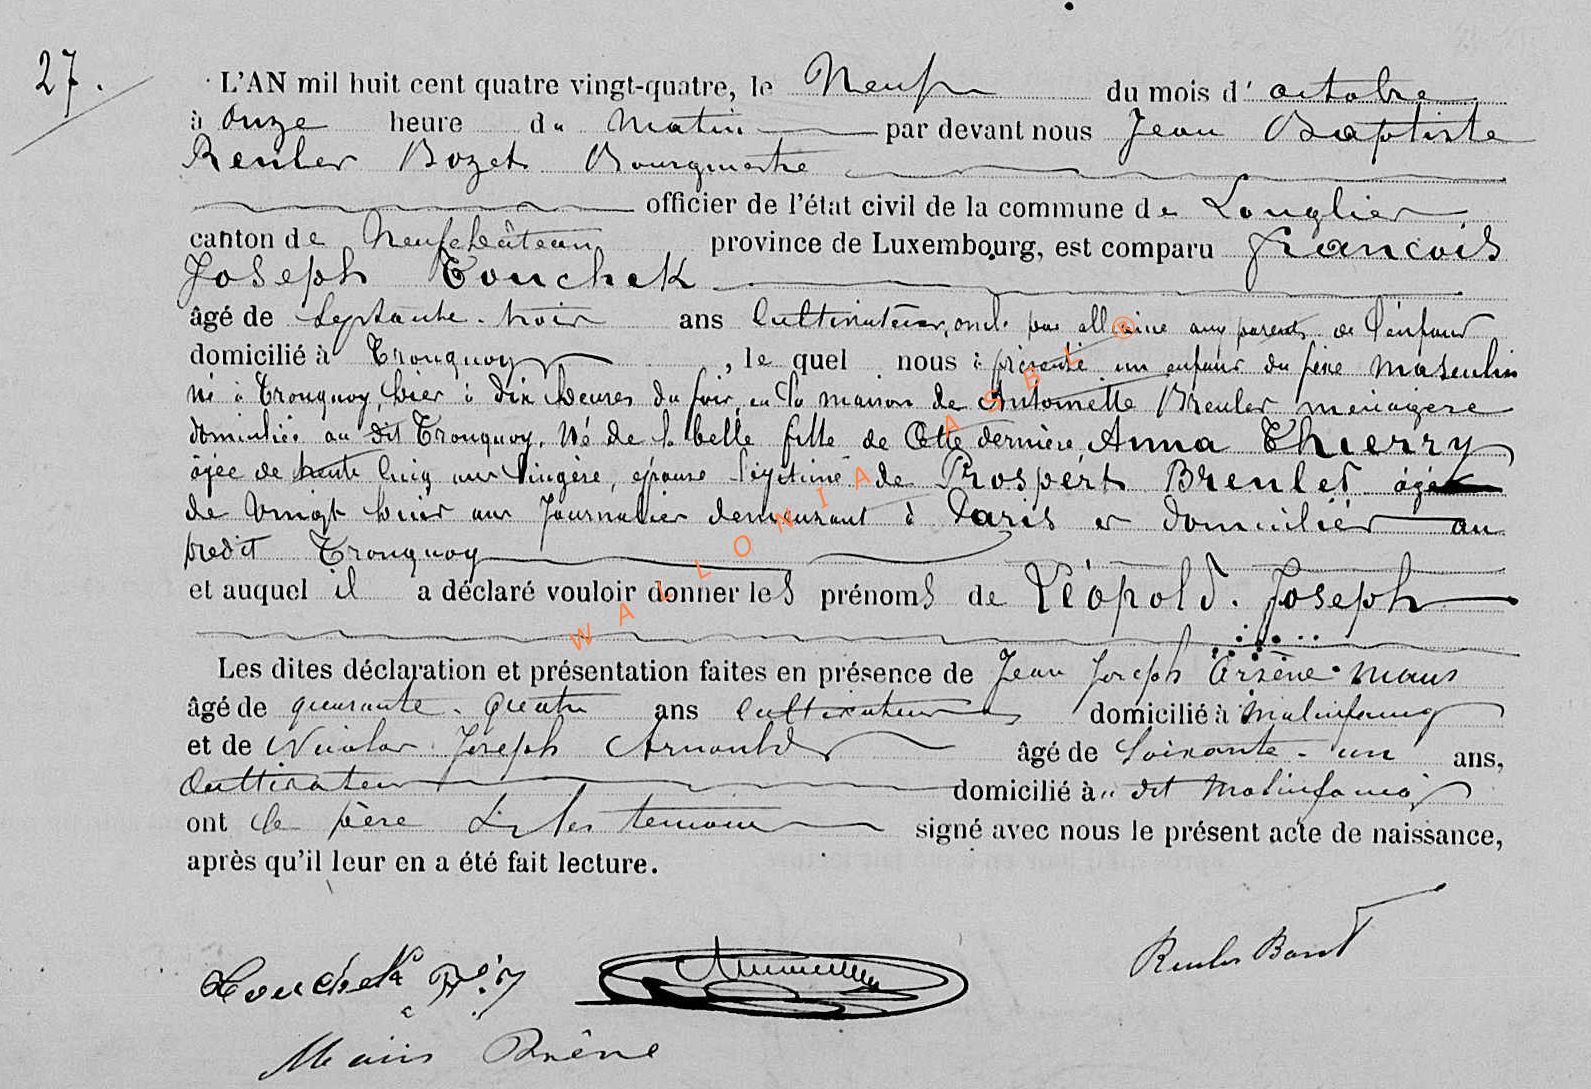 27.
L'AN mil huit cent quatre vingt-quatre, le Neuf du mois d'octobre
à onze heure du matin par devant nous Jean Baptiste
Reuler Bozet Bourgmestre
officier de l'état civil de la commune de Longlier
canton de Neufchâteau province de Luxembourg, est comparu françois
Joseph Touchek
âgé de Septante-trois ans Cultivateur, oncle par alliance aux parents de l'enfant
domicilié à Tronquoy, le quel nous a présenté un enfant du sexe masculin
né à Tronquoy, hier à dix heures du soir, en la maison de Antoinette Breulet ménagère
domiciliée au dit Tronquoy. Né de la belle fille de Cette dernière, Anna Thierry
âgée de trente cinq ans lingère, épouse légitime de Prospért Breulet âgé
de vingt huit ans Journalier demeurant à Paris et domicilier au
predit Tronquoy
et auquel il a déclaré vouloir donner les prénoms de Léopold. Joseph
Les dites déclaration et présentation faites en présence de Jean Joseph Arsène Maus
âgé de quarante-quatre ans cultivateur domicilié à Molinfaing
et de Nicolas Joseph Arnould âgé de Soixante-un ans,
Cultivateur domicilié à u dit Molinfaing
ont le père et les temoins signé avec nous le présent acte de naissance,
après qu'il leur en a été fait lecture.
Reuler Bozet
Touchek
Maus Arsène
WALLONIA ASBL ®